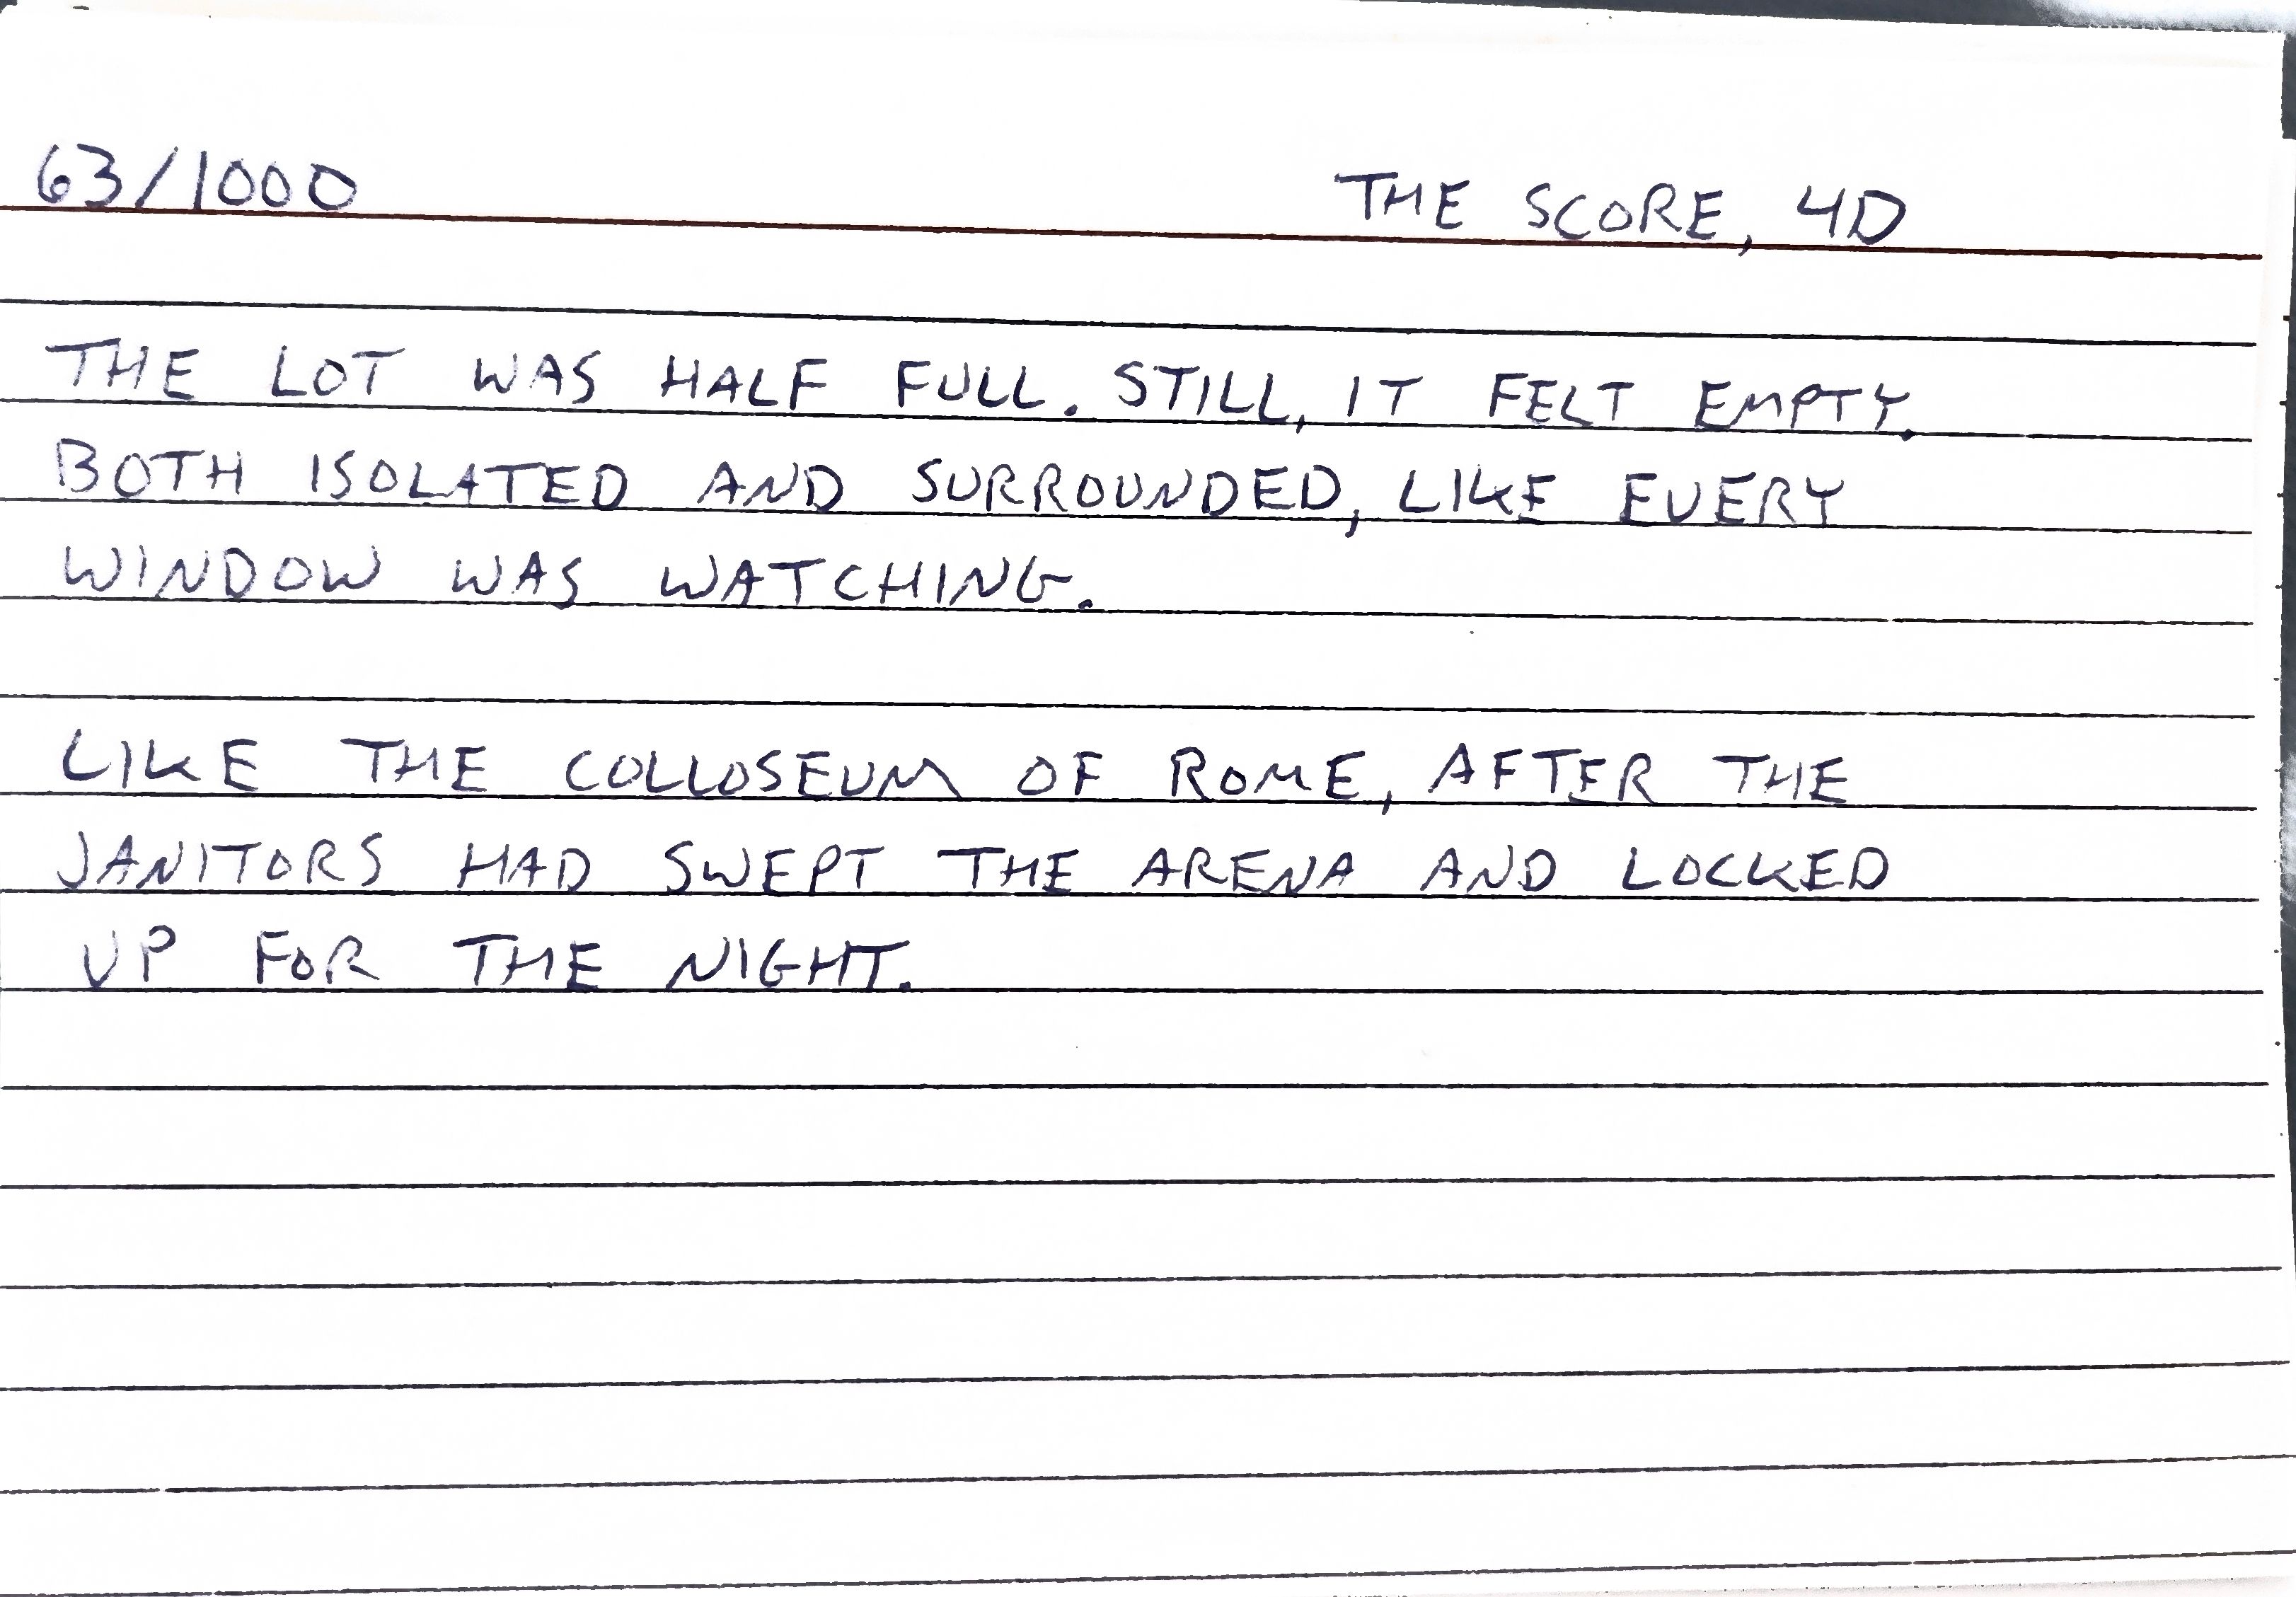 63/1000 THE SCORE, 4D
THE LOT WAS HALF FULL. STILL, IT FELT EMPTY.
BOTH ISOLATED AND SURROUNDED, LIKE EVERY
WINDOW WAS WATCHING.
LIKE THE COLLOSEUM OF ROME, AFTER THE
JANITORS HAD SWEPT THE ARENA AND LOCKED
UP FOR THE NIGHT.